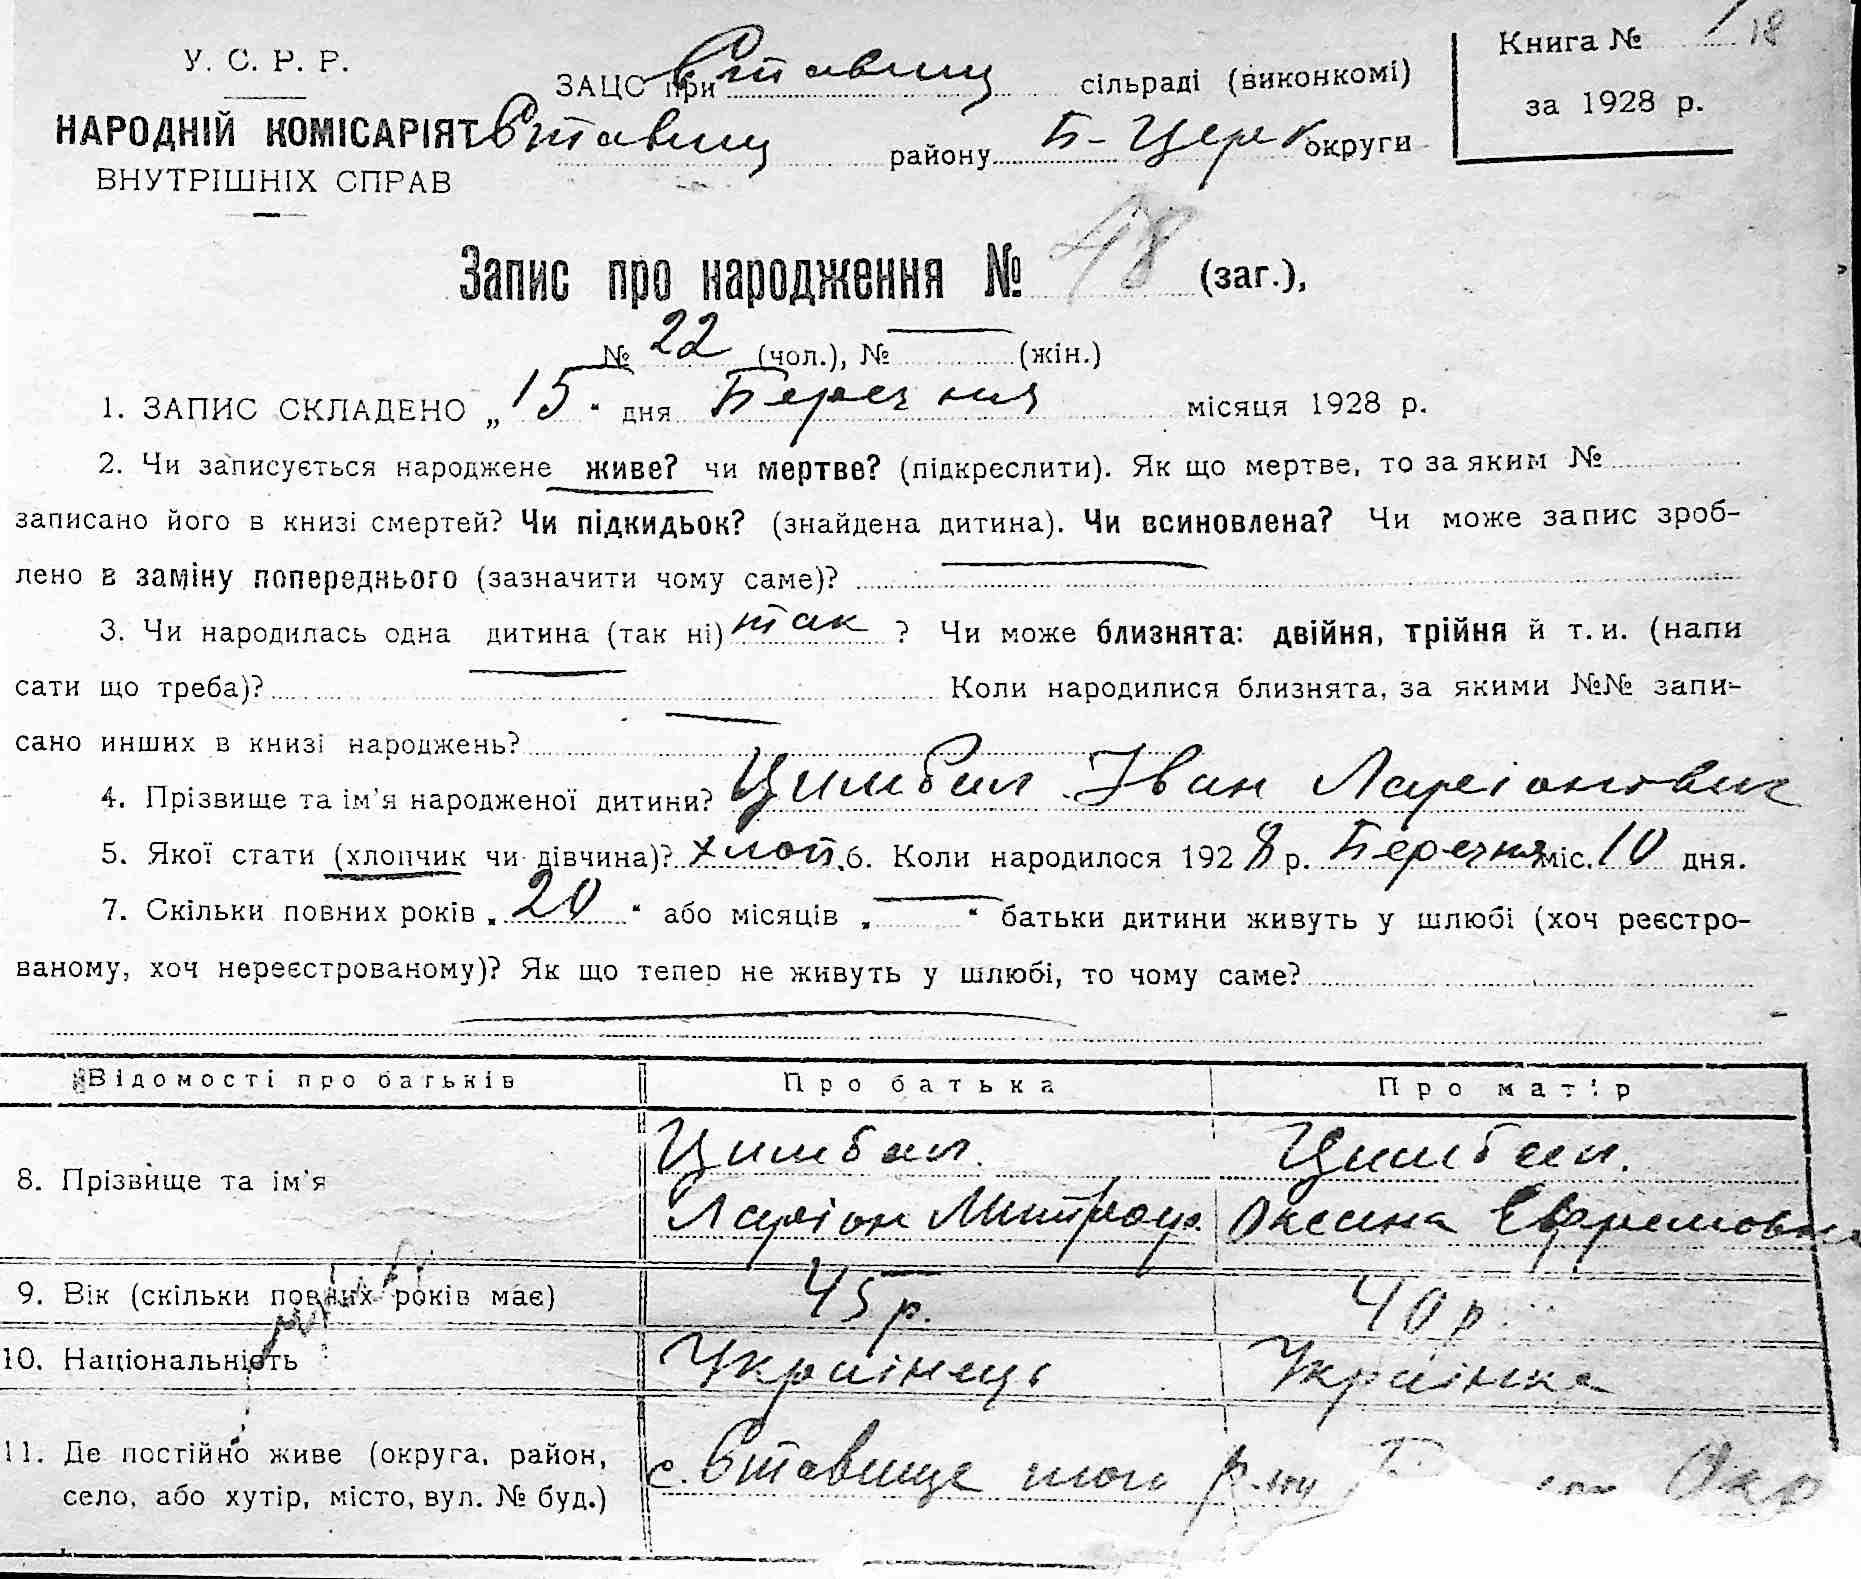 У. С. Р. Р.
НАРОДНІЙ КОМІСАРІЯТ
ВНУТРІШНІХ СПРАВ
ЗАЦС при Ставищ сільраді (виконкомі)
Ставищ району Б-Церк округи
Книга № 18
за 1928 р.
Запис про народження № 48 (заг.),
№ 22 (чол.), № — (жін.)
1. ЗАПИС СКЛАДЕНО „15“ дня Березня місяця 1928 р.
2. Чи записується народжене живе? чи мертве? (підкреслити). Як що мертве, то за яким №
записано його в книзі смертей? Чи підкидьок? (знайдена дитина). Чи всиновлена? Чи може запис зроб-
лено в заміну попереднього (зазначити чому саме)?
3. Чи народилась одна дитина (так ні) так ? Чи може близнята: двійня, трійня й т. и. (напи
сати що треба)? Коли народилися близнята, за якими №№ запи-
сано инших в книзі народжень?
4. Прізвище та ім'я народженої дитини? Цимбал Іван Ларіонович
5. Якої стати (хлопчик чи дівчина)? хлоп. 6. Коли народилося 1928 р. Березня міс. 10 дня.
7. Скільки повних років „20“ або місяців „—“ батьки дитини живуть у шлюбі (хоч реєстро-
ваному, хоч нереєстрованому)? Як що тепер не живуть у шлюбі, то чому саме?
Відомості про батьків Про батька Про матір
8. Прізвище та ім'я Цимбал. Цимбал.
Ларіон Митроф. Оксана Ефремовна
9. Вік (скільки повних років має) 45 р. 40 р.
10. Національність Українець Українка
11. Де постійно живе (округа, район,
село, або хутір, місто, вул. № буд.) с. Ставище того р-ну Окр